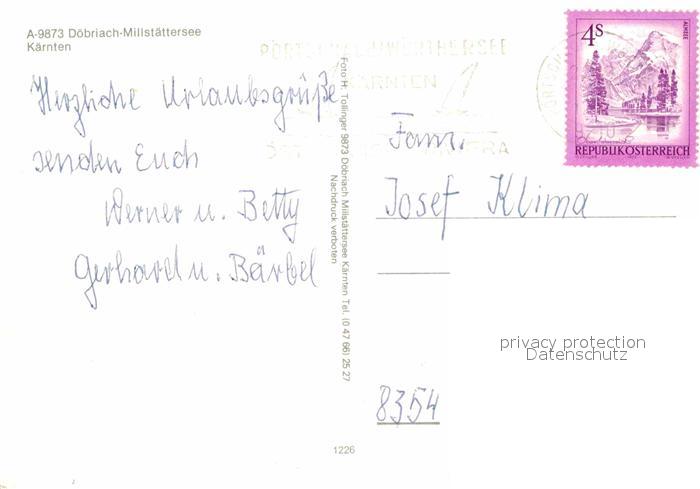 A-9873 Döbriach-Millstättersee
Kärnten
Herzliche Urlaubsgrüße
senden Euch
Werner u. Betty
Gerhard u. Bärbel
Foto H. Tollinger 9873 Döbriach Millstättersee Kärnten Tel. (0 47 66) 25 27
Nachdruck verboten
1226
PÖRTSCHACH/WÖRTHERSEE
KÄRNTEN
4S
ALMSEE
REPUBLIK ÖSTERREICH
Fam.
Josef Klima
privacy protection
Datenschutz
8354